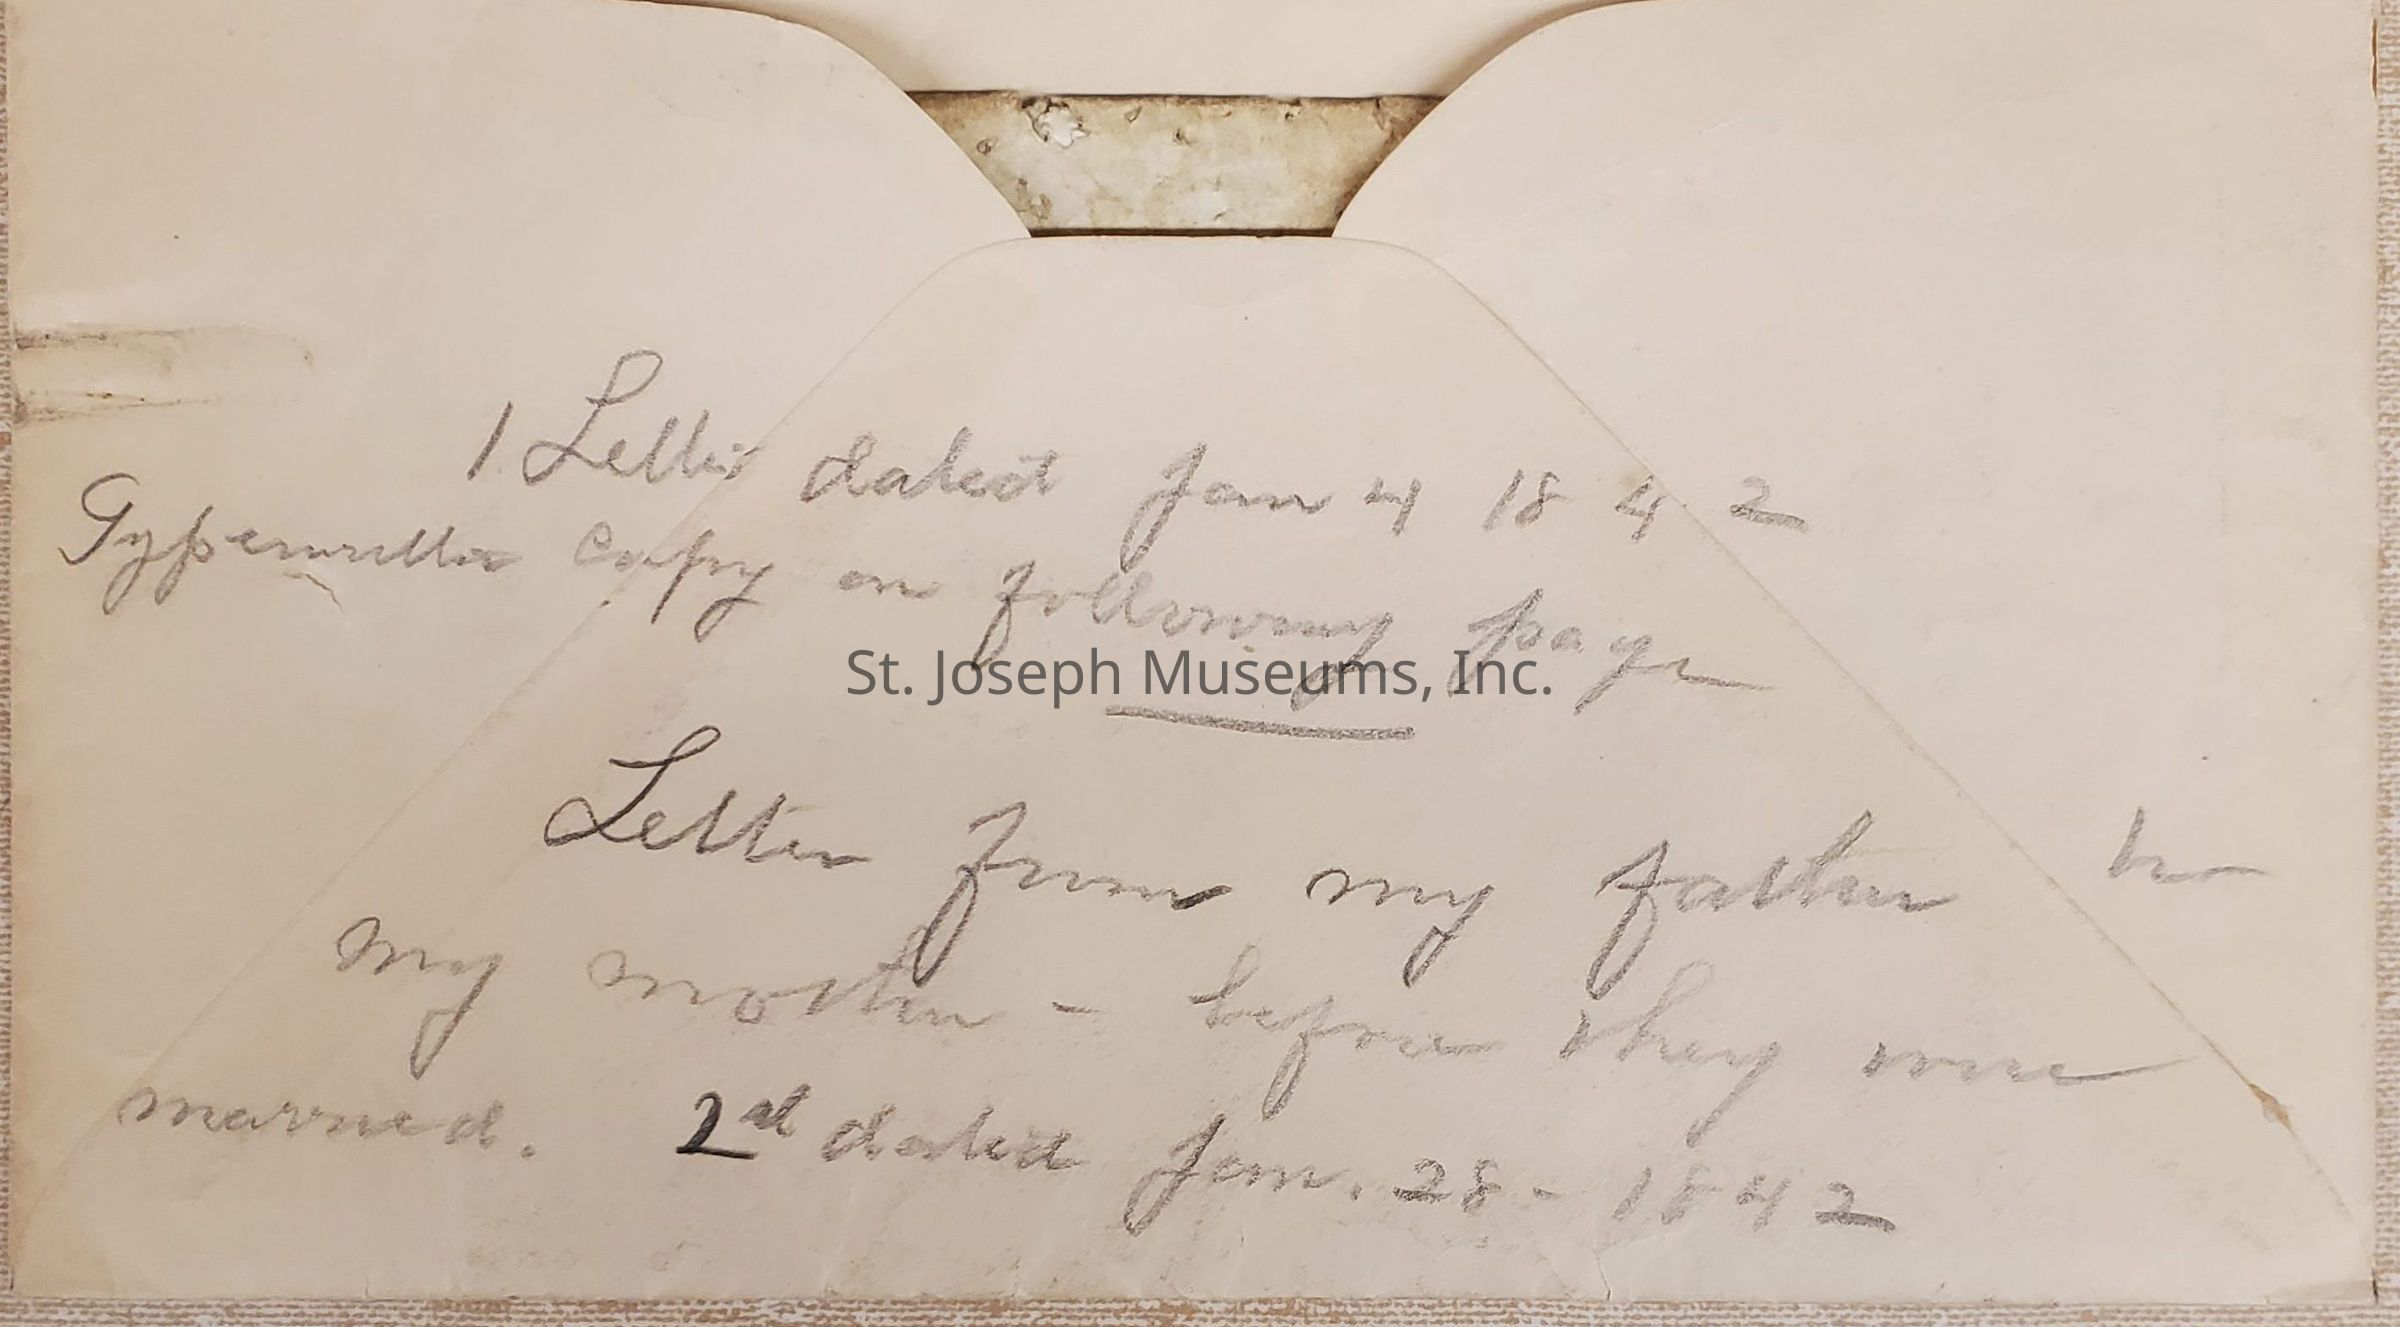 1 Letter dated Jan 4 1842
Typewritten copy on following page
St. Joseph Museums, Inc.
Letter from my father to
my mother - before they were
married. 2nd dated Jan. 28 - 1842